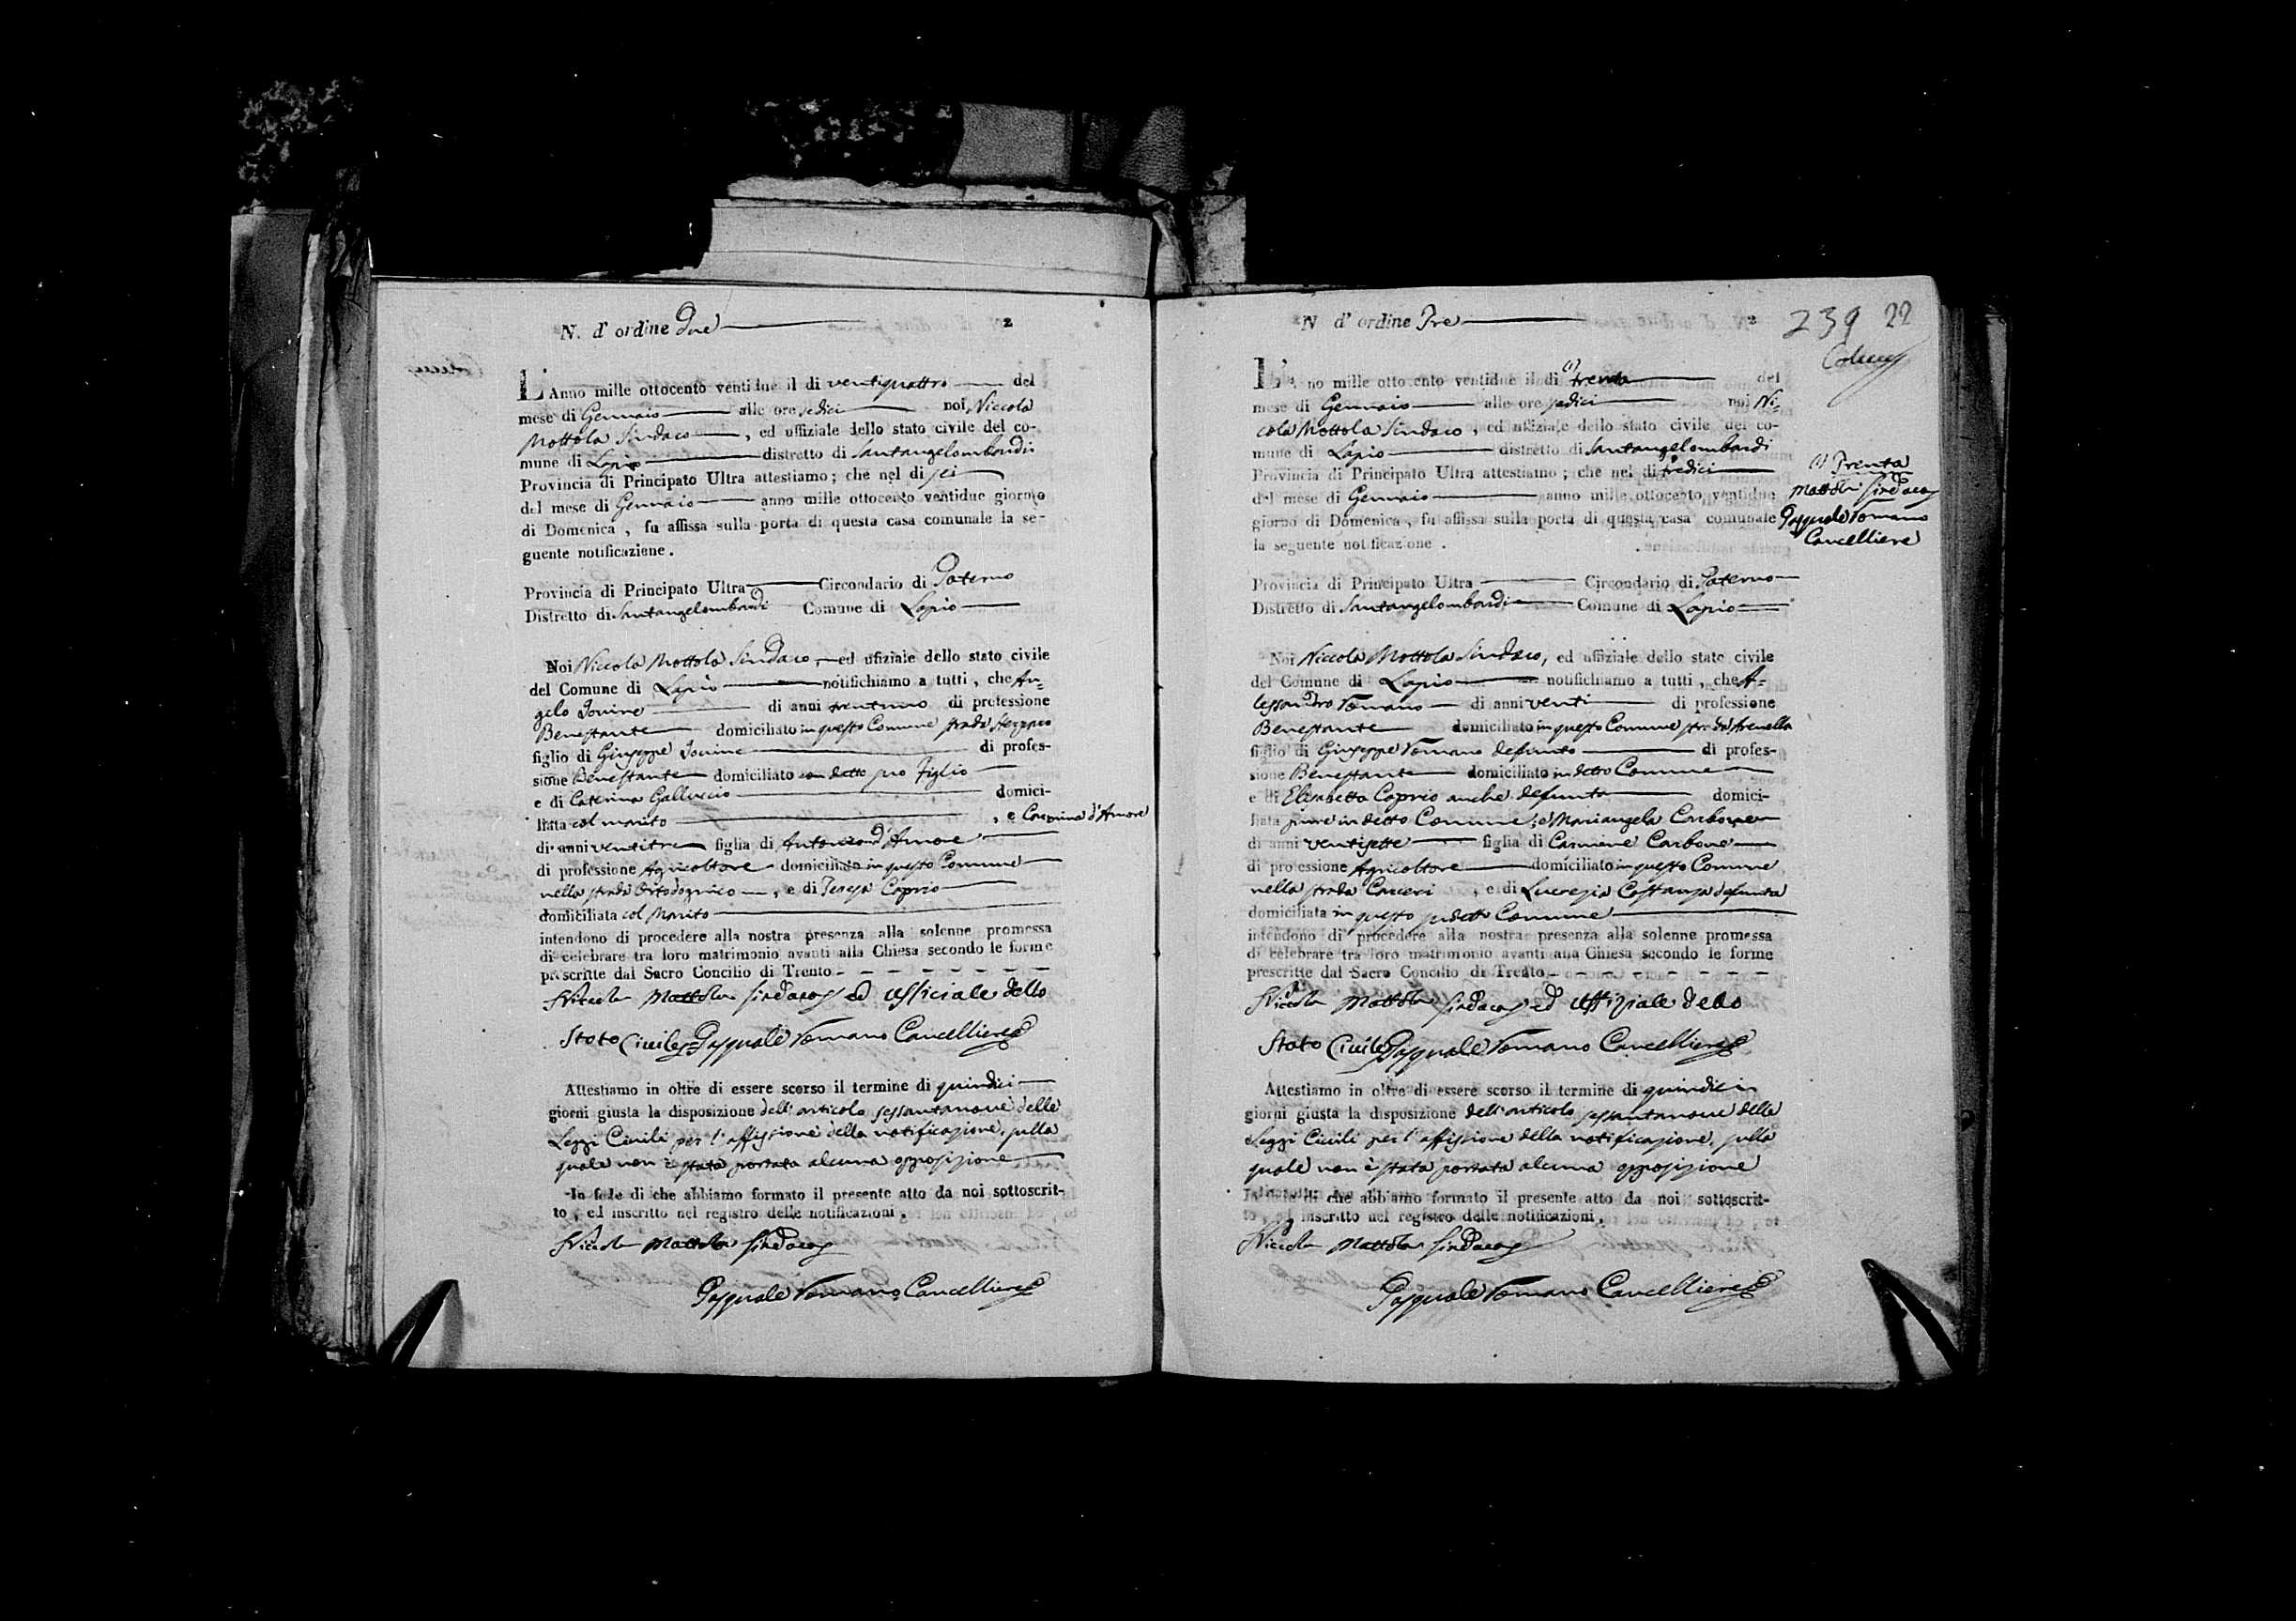 N. d' ordine Due
2
L' Anno mille ottocento ventidue il di ventiquattro del
mese di Gennaio alle ore sedici noi Niccola
Mottola Sindaco, ed uffiziale dello stato civile del co-
mune di Lapio distretto di Santangelombardi
Provincia di Principato Ultra attestiamo; che nel di sei
del mese di Gennaio anno mille ottocento ventidue giorno
di Domenica, fu affissa sulla porta di questa casa comunale la se-
guente notificazione.
Provincia di Principato Ultra Circondario di Paterno
Distretto di Santangelombardi Comune di Lapio
Noi Niccola Mottola Sindaco, ed ufiziale dello stato civile
del Comune di Lapio notifichiamo a tutti, che An=
gelo Iovine di anni trentuno di professione
Benestante domiciliato in questo Comune strada
figlio di Giuseppe Iovine di profes-
sione Benestante domiciliato con detto suo Figlio
e di Caterina Galluccio domici-
liata col marito, e Carmina d'Amore
di anni ventitre figlia di Antonio d'Amore
di professione Agricoltore domiciliato in questo Comune
nella strada, e di Teresa Caprio
domiciliata col Marito
intendono di procedere alla nostra presenza alla solenne promessa
di celebrare tra loro matrimonio avanti alla Chiesa secondo le forme
prescritte dal Sacro Concilio di Trento - - - - - - - -
Niccola Mottola Sindaco ed Ufficiale dello
Stato Civile Pasquale Romano Cancelliere
Attestiamo in oltre di essere scorso il termine di quindici
giorni giusta la disposizione dell'articolo sessantanove delle
Leggi Civili per l'affissione della notificazione, sulla
quale non è stata portata alcuna opposizione
In fede di che abbiamo formato il presente atto da noi sottoscrit-
to, ed inscritto nel registro delle notificazioni.
Niccola Mottola Sindaco
Pasquale Romano Cancelliere
N d' ordine Tre
2
239 22
L' Anno mille ottocento ventidue il di (1) trenta del
mese di Gennaio alle ore sedici noi Ni=
cola Mottola Sindaco, ed uffiziale dello stato civile del co-
mune di Lapio distretto di Santangelombardi
Provincia di Principato Ultra attestiamo; che nel di tredici
del mese di Gennaio anno mille ottocento ventidue
giorno di Domenica, fu affissa sulla porta di questa casa comunale
la seguente notificazione.
(1) Trenta
Mottola Sindaco
Pasquale Romano
Cancelliere
Provincia di Principato Ultra Circondario di Paterno
Distretto di Santangelombardi Comune di Lapio
Noi Niccola Mottola Sindaco, ed uffiziale dello stato civile
del Comune di Lapio notifichiamo a tutti, che A=
lessandro Romano di anni venti di professione
Benestante domiciliato in questo Comune strada Arenella
figlio di Giuseppe Romano defunto di profes-
sione Benestante domiciliato in detto Comune
e di Elisabetta Caprio anche defunta domici-
liata pure in detto Comune, e Mariangela Carbone
di anni ventisette figlia di Carmine Carbone
di professione Agricoltore domiciliato in questo Comune
nella strada Carceri, e di Lucrezia Costanza defunta
domiciliata in questo sudetto Comune
intendono di procedere alla nostra presenza alla solenne promessa
di celebrare tra loro matrimonio avanti alla Chiesa secondo le forme
prescritte dal Sacro Concilio di Trento - - - - - - - -
Niccola Mottola Sindaco ed Uffiziale dello
Stato Civile Pasquale Romano Cancelliere
Attestiamo in oltre di essere scorso il termine di quindici
giorni giusta la disposizione dell'articolo sessantanove delle
Leggi Civili per l'affissione della notificazione, sulla
quale non è stata portata alcuna opposizione
In fede di che abbiamo formato il presente atto da noi sottoscrit-
to, ed inscritto nel registro delle notificazioni.
Niccola Mottola Sindaco
Pasquale Romano Cancelliere